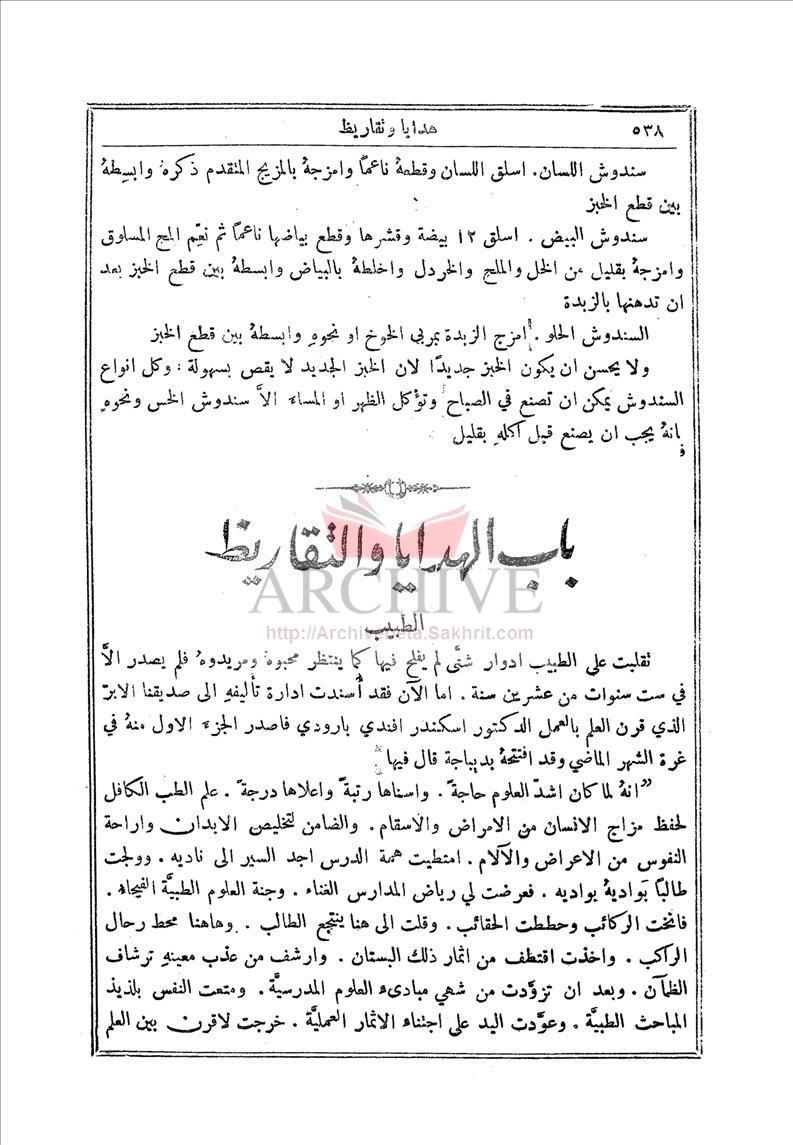 ٥٣٨ هدايا وتقاريظ
سندوش اللسان. اسلق اللسان وقطعهُ ناعمًا وامزجهُ بالمزيج المتقدم ذكرهُ وابسِطهُ
بين قطع الخبز
سندوش البيض. اسلق ١٢ بيضة وقشرها وقطع بياضها ناعمًا ثم نعّم المح المسلوق
وامزجهُ بقليل من الخل والملح والخردل واخلطهُ بالبياض وابسطهُ بين قطع الخبز بعد
ان تدهنها بالزبدة
السندوش الحلو. امزج الزبدة بمربي الخوخ او نحوهِ وابسطهُ بين قطع الخبز
ولا يحسن ان يكون الخبز جديدًا لان الخبز الجديد لا يقص بسهولة: وكل انواع
السندوش يمكن ان تصنع في الصباح وتؤكل الظهر او المساء الاَّ سندوش الخس ونحوهِ
فانهُ يجب ان يصنع قبل اكلهِ بقليل
باب الهدايا والتقاريظ
ARCHIVE
الطبيب
http://Archivebeta.Sakhrit.com
تقلبت على الطبيب ادوار شتَّى لم يفلح فيها كما ينتظر محبوهُ ومريدوهُ فلم يصدر الاَّ
في ست سنوات من عشرين سنة. اما الآن فقد أُسندت ادارة تأليفهِ الى صديقنا الابرّ
الذي قرن العلم بالعمل الدكتور اسكندر افندي بارودي فاصدر الجزء الاول منهُ في
غرة الشهر الماضي وقد افتتحهُ بديباجة قال فيها
"انهُ لما كان اشدَّ العلوم حاجةً. واسناها رتبةً واعلاها درجةً. علم الطب الكافل
لحفظ مزاج الانسان من الامراض والاسقام. والضامن لتخليص الابدان واراحة
النفوس من الاعراض والآلام. امتطيت همة الدرس اجد السير الى ناديه. وولجت
طالبًا بَواديهُ بواديه. فعرضت لي رياض المدارس الغناء. وجنة العلوم الطبيَّة الفيحاء.
فانخت الركائب وحططت الحقائب. وقلت الى هنا ينتجع الطالب. وهاهنا محط رحال
الراكب. واخذت اقتطف من اثمار ذلك البستان. وارشف من عذب معينهِ ترشاف
الظمآن. وبعد ان تزوَّدت من شهي مبادىء العلوم المدرسيَّة. ومتعت النفس بلذيذ
المباحث الطبيَّة. وعوَّدت اليد على اجتناء الاثمار العمليَّة. خرجت لاقرن بين العلم